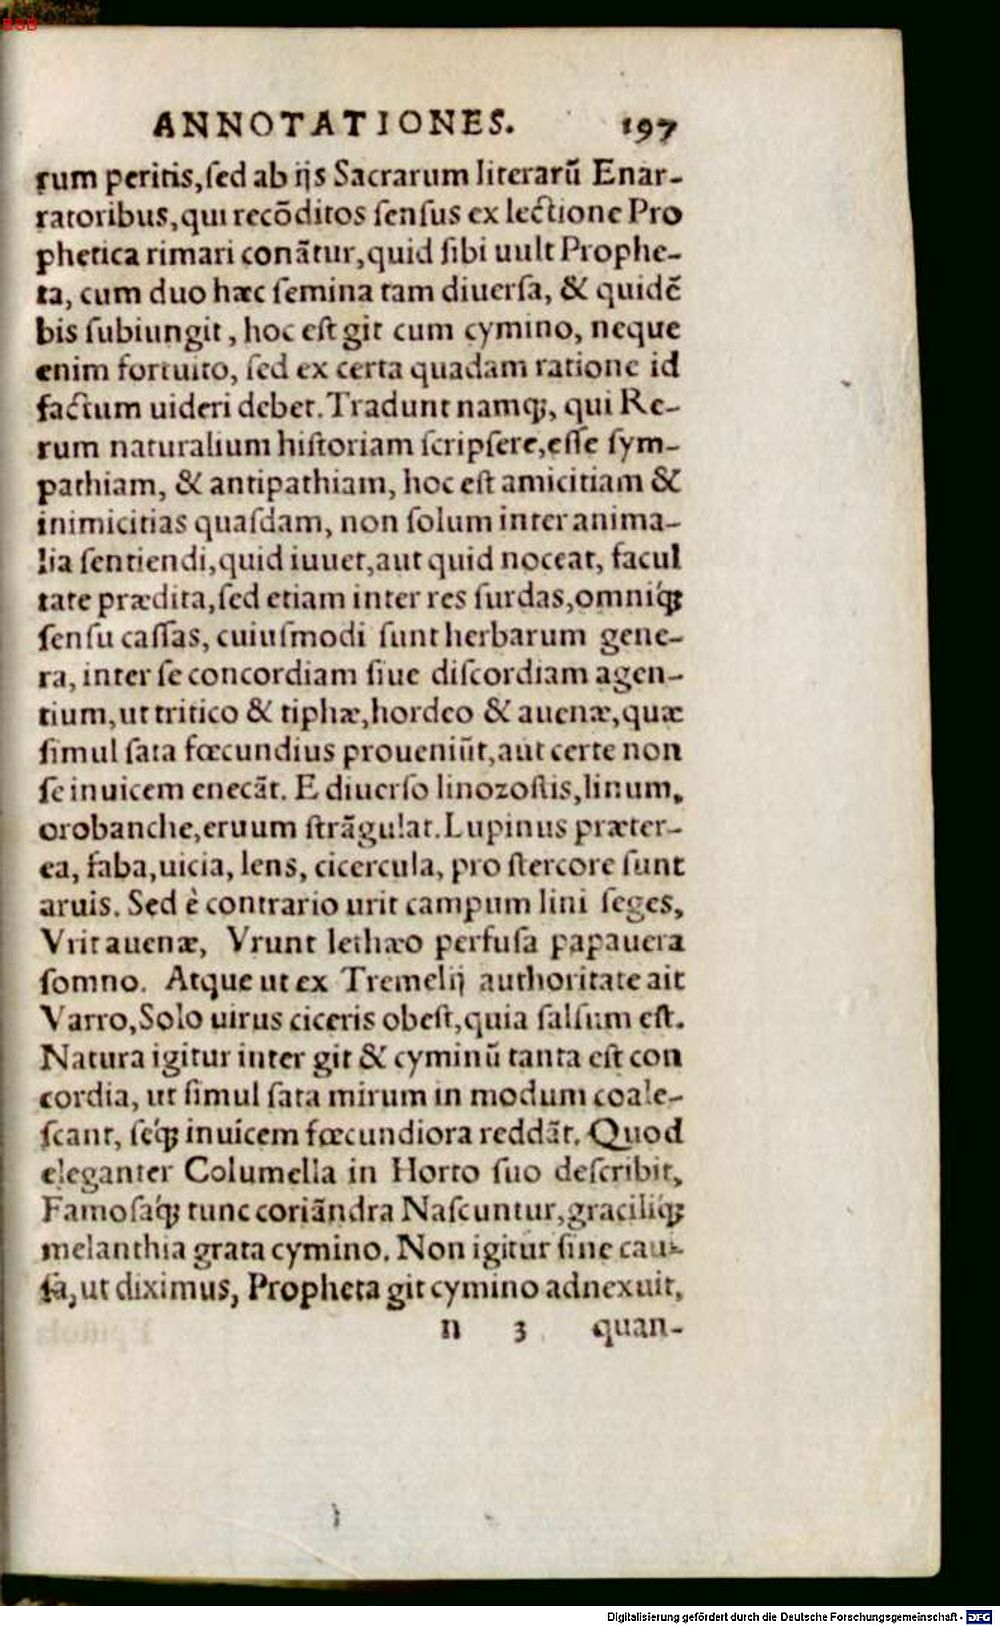 BSB
ANNOTATIONES. 197
rum peritis, sed ab ijs Sacrarum literarũ Enar-
ratoribus, qui recõditos sensus ex lectione Pro
phetica rimari conãtur, quid sibi uult Prophe-
ta, cum duo hæc semina tam diuersa, & quidẽ
bis subiungit, hoc est git cum cymino, neque
enim fortuito, sed ex certa quadam ratione id
factum uideri debet. Tradunt namq́;, qui Re-
rum naturalium historiam scripsere, esse sym-
pathiam, & antipathiam, hoc est amicitiam &
inimicitias quasdam, non solum inter anima-
lia sentiendi, quid iuuet, aut quid noceat, facul
tate prædita, sed etiam inter res surdas, omniq́;
sensu cassas, cuiusmodi sunt herbarum gene-
ra, inter se concordiam siue discordiam agen-
tium, ut tritico & tiphæ, hordeo & auenæ, quæ
simul sata fœcundius proueniũt, aut certe non
se inuicem enecãt. E diuerso linozostis, linum,
orobanche, eruum strãgulat. Lupinus præter-
ea, faba, uicia, lens, cicercula, pro stercore sunt
aruis. Sed è contrario urit campum lini seges,
Vrit auenæ, Vrunt lethæo perfusa papauera
somno. Atque ut ex Tremelij authoritate ait
Varro, Solo uirus ciceris obest, quia salsum est.
Natura igitur inter git & cyminũ tanta est con
cordia, ut simul sata mirum in modum coale-
scant, seq́; inuicem fœcundiora reddãt. Quod
eleganter Columella in Horto suo describit,
Famosaq́; tunc coriãndra Nascuntur, graciliq́;
melanthia grata cymino. Non igitur sine cau-
sa, ut diximus, Propheta git cymino adnexuit,
n 3 quan-
Digitalisierung gefördert durch die Deutsche Forschungsgemeinschaft - DFG